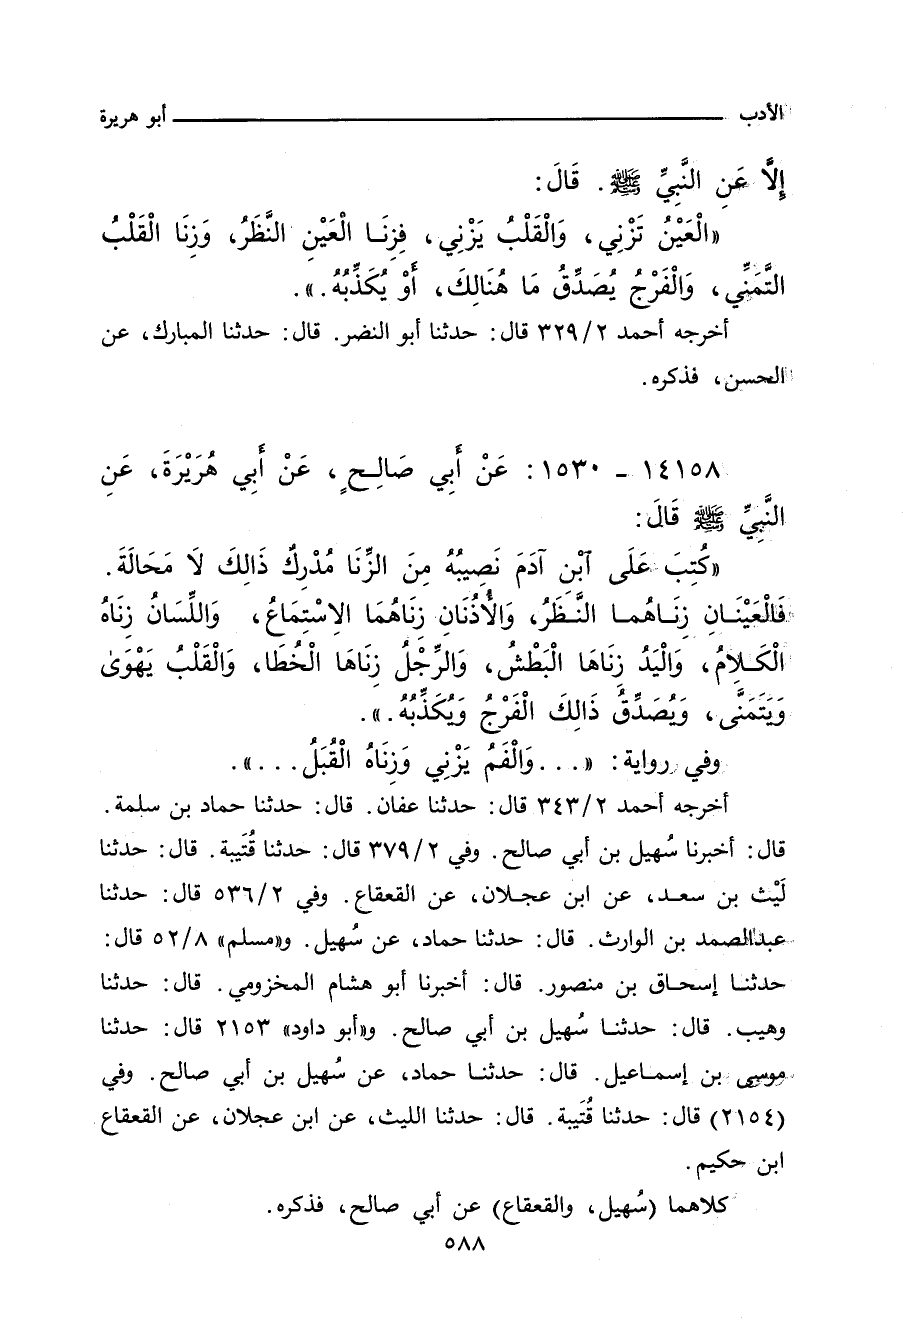 الأدب ــــــــــ أبو هريرة
إِلَّا عَنِ النَّبِيِّ ﷺ. قَالَ:
«الْعَيْنُ تَزْنِي، وَالْقَلْبُ يَزْنِي، فِزِنَا الْعَيْنِ النَّظَرُ، وَزِنَا الْقَلْبُ
التَّمَنِّي، وَالْفَرْجُ يُصَدِّقُ مَا هُنَالِكَ، أَوْ يُكَذِّبُهُ.».
أخرجه أحمد ٣٢٩/٢ قال: حدثنا أبو النضر. قال: حدثنا المبارك، عن
الحسن، فذكره.
١٤١٥٨ - ١٥٣٠: عَنْ أَبِي صَالِحٍ، عَنْ أَبِي هُرَيْرَةَ، عَنِ
النَّبِيِّ ﷺ قَالَ:
«كُتِبَ عَلَى ٱبْنِ آدَمَ نَصِيبُهُ مِنَ الزِّنَا مُدْرِكٌ ذَالِكَ لَا مَحَالَةَ.
فَالْعَيْنَانِ زِنَاهُمَا النَّظَرُ، وَالْأُذُنَانِ زِنَاهُمَا الاِسْتِمَاعُ، وَاللِّسَانُ زِنَاهُ
الْكَلَامُ، وَالْيَدُ زِنَاهَا الْبَطْشُ، وَالرِّجْلُ زِنَاهَا الْخُطَا، وَالْقَلْبُ يَهْوَىٰ
وَيَتَمَنَّى، وَيُصَدِّقُ ذَالِكَ الْفَرْجُ وَيُكَذِّبُهُ.».
وفي رواية: «... وَالْفَمُ يَزْنِي وَزِنَاهُ الْقُبَلُ...».
أخرجه أحمد ٣٤٣/٢ قال: حدثنا عفان. قال: حدثنا حماد بن سلمة.
قال: أخبرنا سُهيل بن أبي صالح. وفي ٣٧٩/٢ قال: حدثنا قُتَيبة. قال: حدثنا
لَيْث بن سعد، عن ابن عجلان، عن القعقاع. وفي ٥٣٦/٢ قال: حدثنا
عبدالصمد بن الوارث. قال: حدثنا حماد، عن سُهيل. و«مسلم» ٥٢/٨ قال:
حدثنا إسحاق بن منصور. قال: أخبرنا أبو هشام المخزومي. قال: حدثنا
وهيب. قال: حدثنا سُهيل بن أبي صالح. و«أبو داود» ٢١٥٣ قال: حدثنا
موسى بن إسماعيل. قال: حدثنا حماد، عن سُهيل بن أبي صالح. وفي
(٢١٥٤) قال: حدثنا قُتَيبة. قال: حدثنا الليث، عن ابن عجلان، عن القعقاع
ابن حكيم.
كلاهما (سُهيل، والقعقاع) عن أبي صالح، فذكره.
٥٨٨